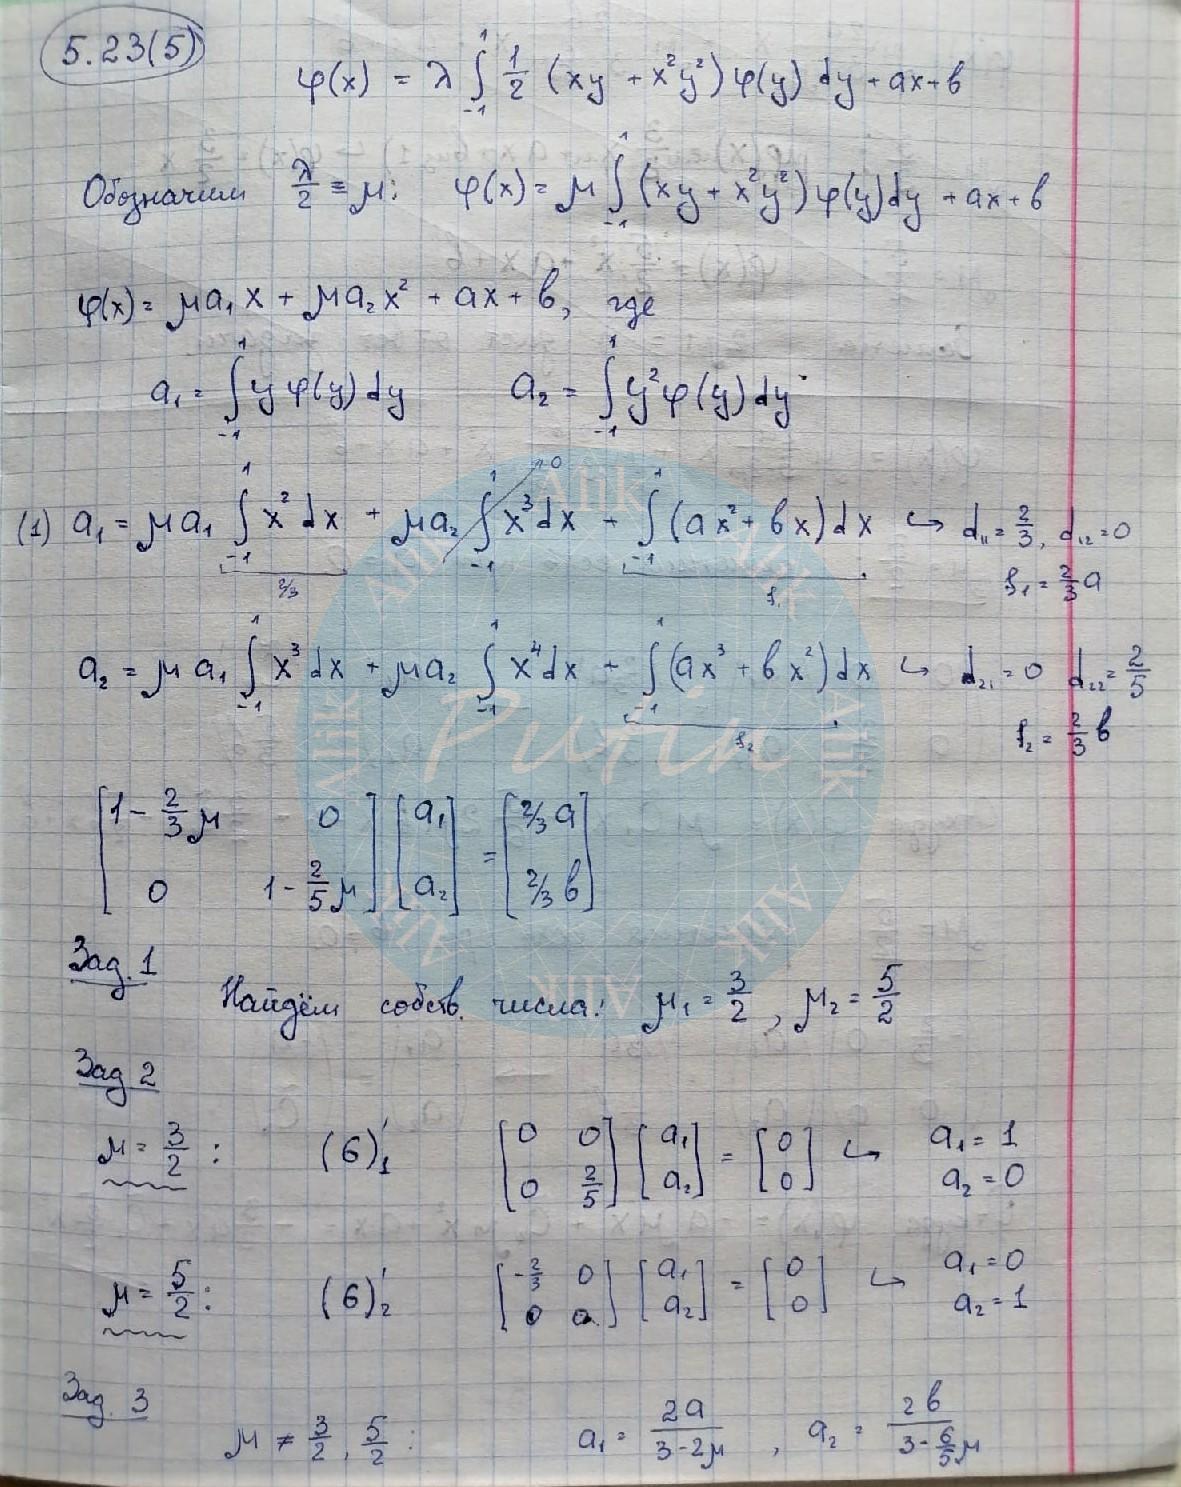 5.23(5)
φ(x) = λ ∫₋₁¹ 1/2 (xy + x²y²) φ(y) dy + ax+b
Обозначим λ/2 ≡ μ: φ(x) = μ ∫₋₁¹ (xy + x²y²) φ(y)dy + ax+b
φ(x) = μa₁x + μa₂x² + ax + b, где
a₁ = ∫₋₁¹ y φ(y) dy a₂ = ∫₋₁¹ y²φ(y) dy
(1) a₁ = μa₁ ∫₋₁¹ x² dx + μa₂ ∫₋₁¹ x³dx + ∫₋₁¹ (ax² + bx)dx ↪ d₁₁ = 2/3, d₁₂ = 0
2/3 0 f₁ f₁ = 2/3 a
a₂ = μa₁ ∫₋₁¹ x³dx + μa₂ ∫₋₁¹ x⁴dx + ∫₋₁¹ (ax³ + bx²)dx ↪ d₂₁ = 0 d₂₂ = 2/5
f₂ f₂ = 2/3 b
[1 - 2/3 μ 0] [a₁] = [2/3 a]
[0 1 - 2/5 μ] [a₂] [2/3 b]
Зад. 1
Найдём собств. числа: μ₁ = 3/2, μ₂ = 5/2
Зад 2
μ = 3/2 : (6)₁' [0 0] [a₁] = [0] ↪ a₁ = 1
[0 2/5] [a₂] [0] a₂ = 0
μ = 5/2 : (6)₂' [-2/3 0] [a₁] = [0] ↪ a₁ = 0
[0 0] [a₂] [0] a₂ = 1
Зад. 3
μ ≠ 3/2, 5/2 : a₁ = 2a/(3-2μ), a₂ = 2b/(3 - 6/5 μ)
Purin
Alik
Alik
Alik
Alik
Alik
Alik
Alik
Alik